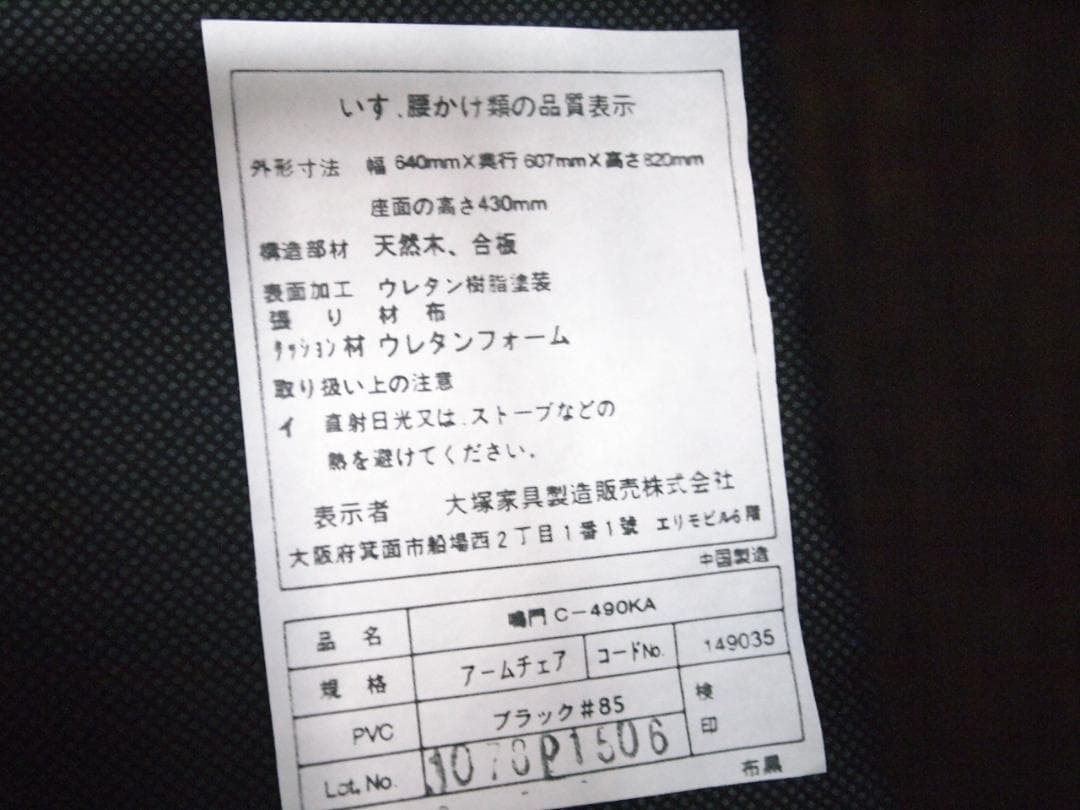 いす、腰かけ類の品質表示
外形寸法 幅 640mm×奥行 607mm×高さ820mm
座面の高さ430mm
構造部材 天然木、合板
表面加工 ウレタン樹脂塗装
張り材 布
クッション材 ウレタンフォーム
取り扱い上の注意
イ 直射日光又は、ストーブなどの
熱を避けてください。
表示者 大塚家具製造販売株式会社
大阪府箕面市船場西2丁目1番1號 エリモビル6階
中国製造
品名 鳴門 C-490KA
規格 アームチェア コードNo. 149035
PVC ブラック#85 検印
Lot.No.
布黒